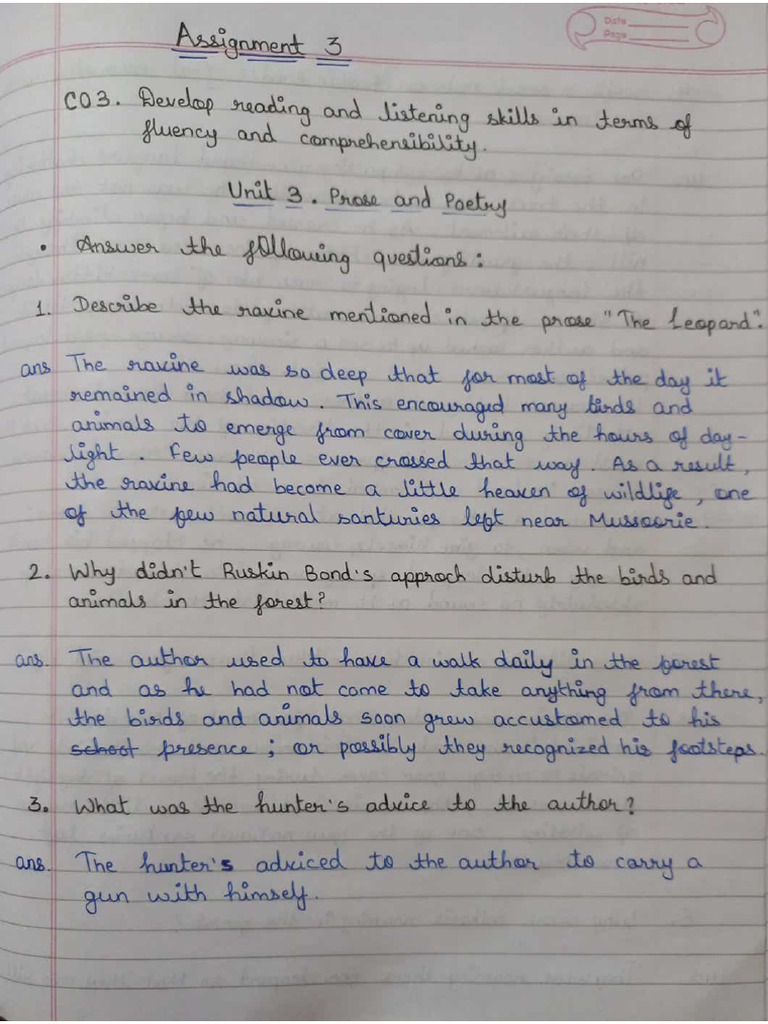 Date
Page
Assignment 3
CO3. Develop reading and listening skills in terms of
fluency and comprehensibility.
Unit 3. Prose and Poetry
• Answer the following questions:
1. Describe the ravine mentioned in the prose "The Leopard".
ans The ravine was so deep that for most of the day it
remained in shadow. This encouraged many birds and
animals to emerge from cover during the hours of day-
light. Few people ever crossed that way. As a result,
the ravine had become a little heaven of wildlife, one
of the few natural santuries left near Mussoorie.
2. Why didn't Ruskin Bond's approch disturb the birds and
animals in the forest?
ans. The author used to have a walk daily in the forest
and as he had not come to take anything from there,
the birds and animals soon grew accustomed to his
school presence; or possibly they recognized his footsteps.
3. What was the hunter's advice to the author?
ans. The hunter's adviced to the author to carry a
gun with himself.